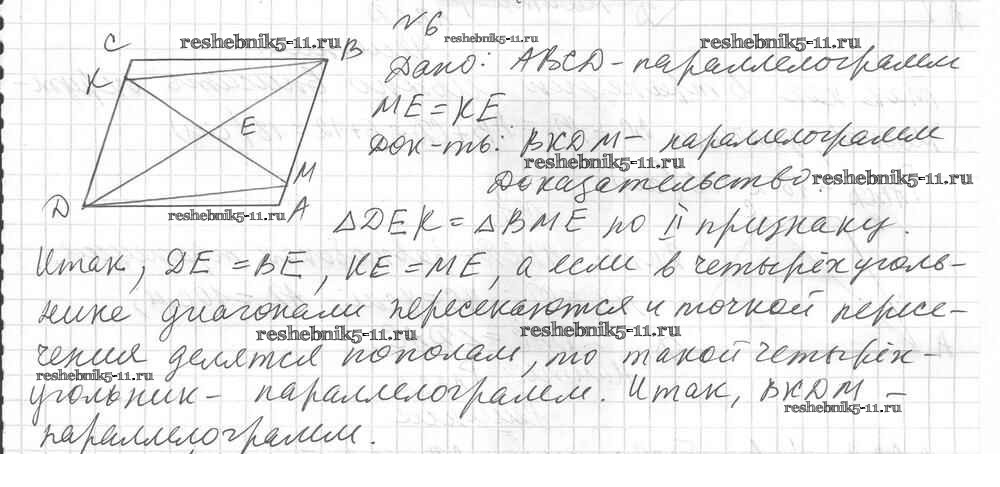 №6
C
reshebnik5-11.ru
B
reshebnik5-11.ru
reshebnik5-11.ru
K
Дано: ABCD - параллелограмм
ME = KE
E
Док-ть: BKDM - параллелограмм
reshebnik5-11.ru
M
Доказательство:
reshebnik5-11.ru
D
reshebnik5-11.ru
A
△DEK = △BME по II признаку.
Итак, DE = BE, KE = ME, а если в четырёхуголь-
нике диагонали пересекаются и точкой пересе-
reshebnik5-11.ru
reshebnik5-11.ru
чения делятся пополам, то такой четырёх-
reshebnik5-11.ru
угольник - параллелограмм. Итак, BKDM -
reshebnik5-11.ru
параллелограмм.